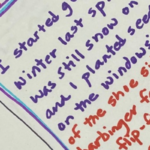 I started g
winter last sp
was still snow on
and I planted see
on the windows
of the shoe
harbinger f
flip-f